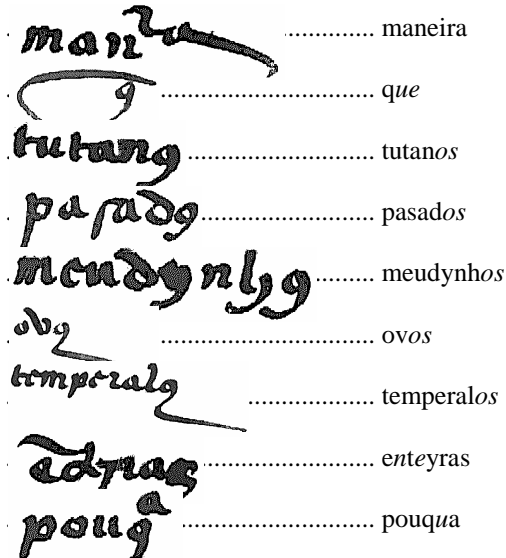 man ............. maneira
q ............................... que
tutan9 ........................... tutanos
pasad9 .......................... pasados
meudynh9 ........ meudynhos
ov9 ............................... ovos
temperal9 .................. temperalos
........................ enteyras
pouqa ........................... pouqua